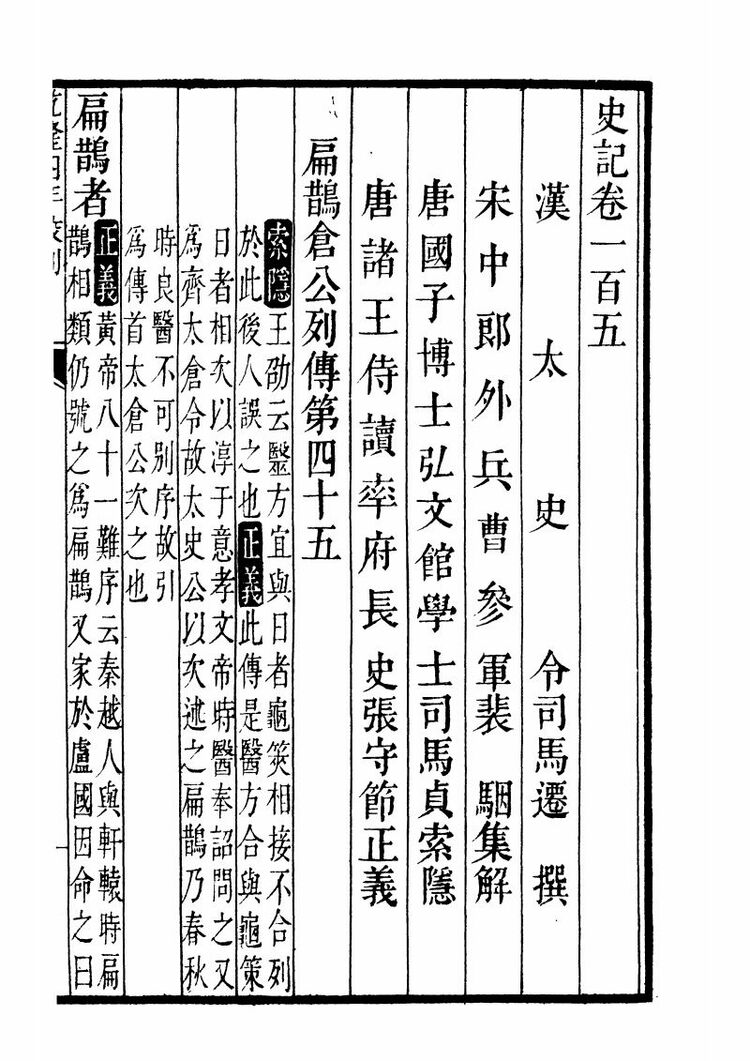 史記卷一百五
漢太史令司馬遷撰
宋中郎外兵曹參軍裴駰集解
唐國子博士弘文館學士司馬貞索隱
唐諸王侍讀率府長史張守節正義
扁鵲倉公列傳第四十五
索隱王劭云毉方宜與日者龜筴相接不合列
於此後人誤之也正義此傳是醫方合與龜策
日者相次以淳于意孝文帝時醫奉詔問之又
爲齊太倉令故太史公以次述之扁鵲乃春秋
時良醫不可別序故引
爲傳首太倉公次之也
扁鵲者正義黃帝八十一難序云秦越人與軒轅時扁
鵲相類仍號之爲扁鵲又家於盧國因命之曰
乾隆四年校刊
一